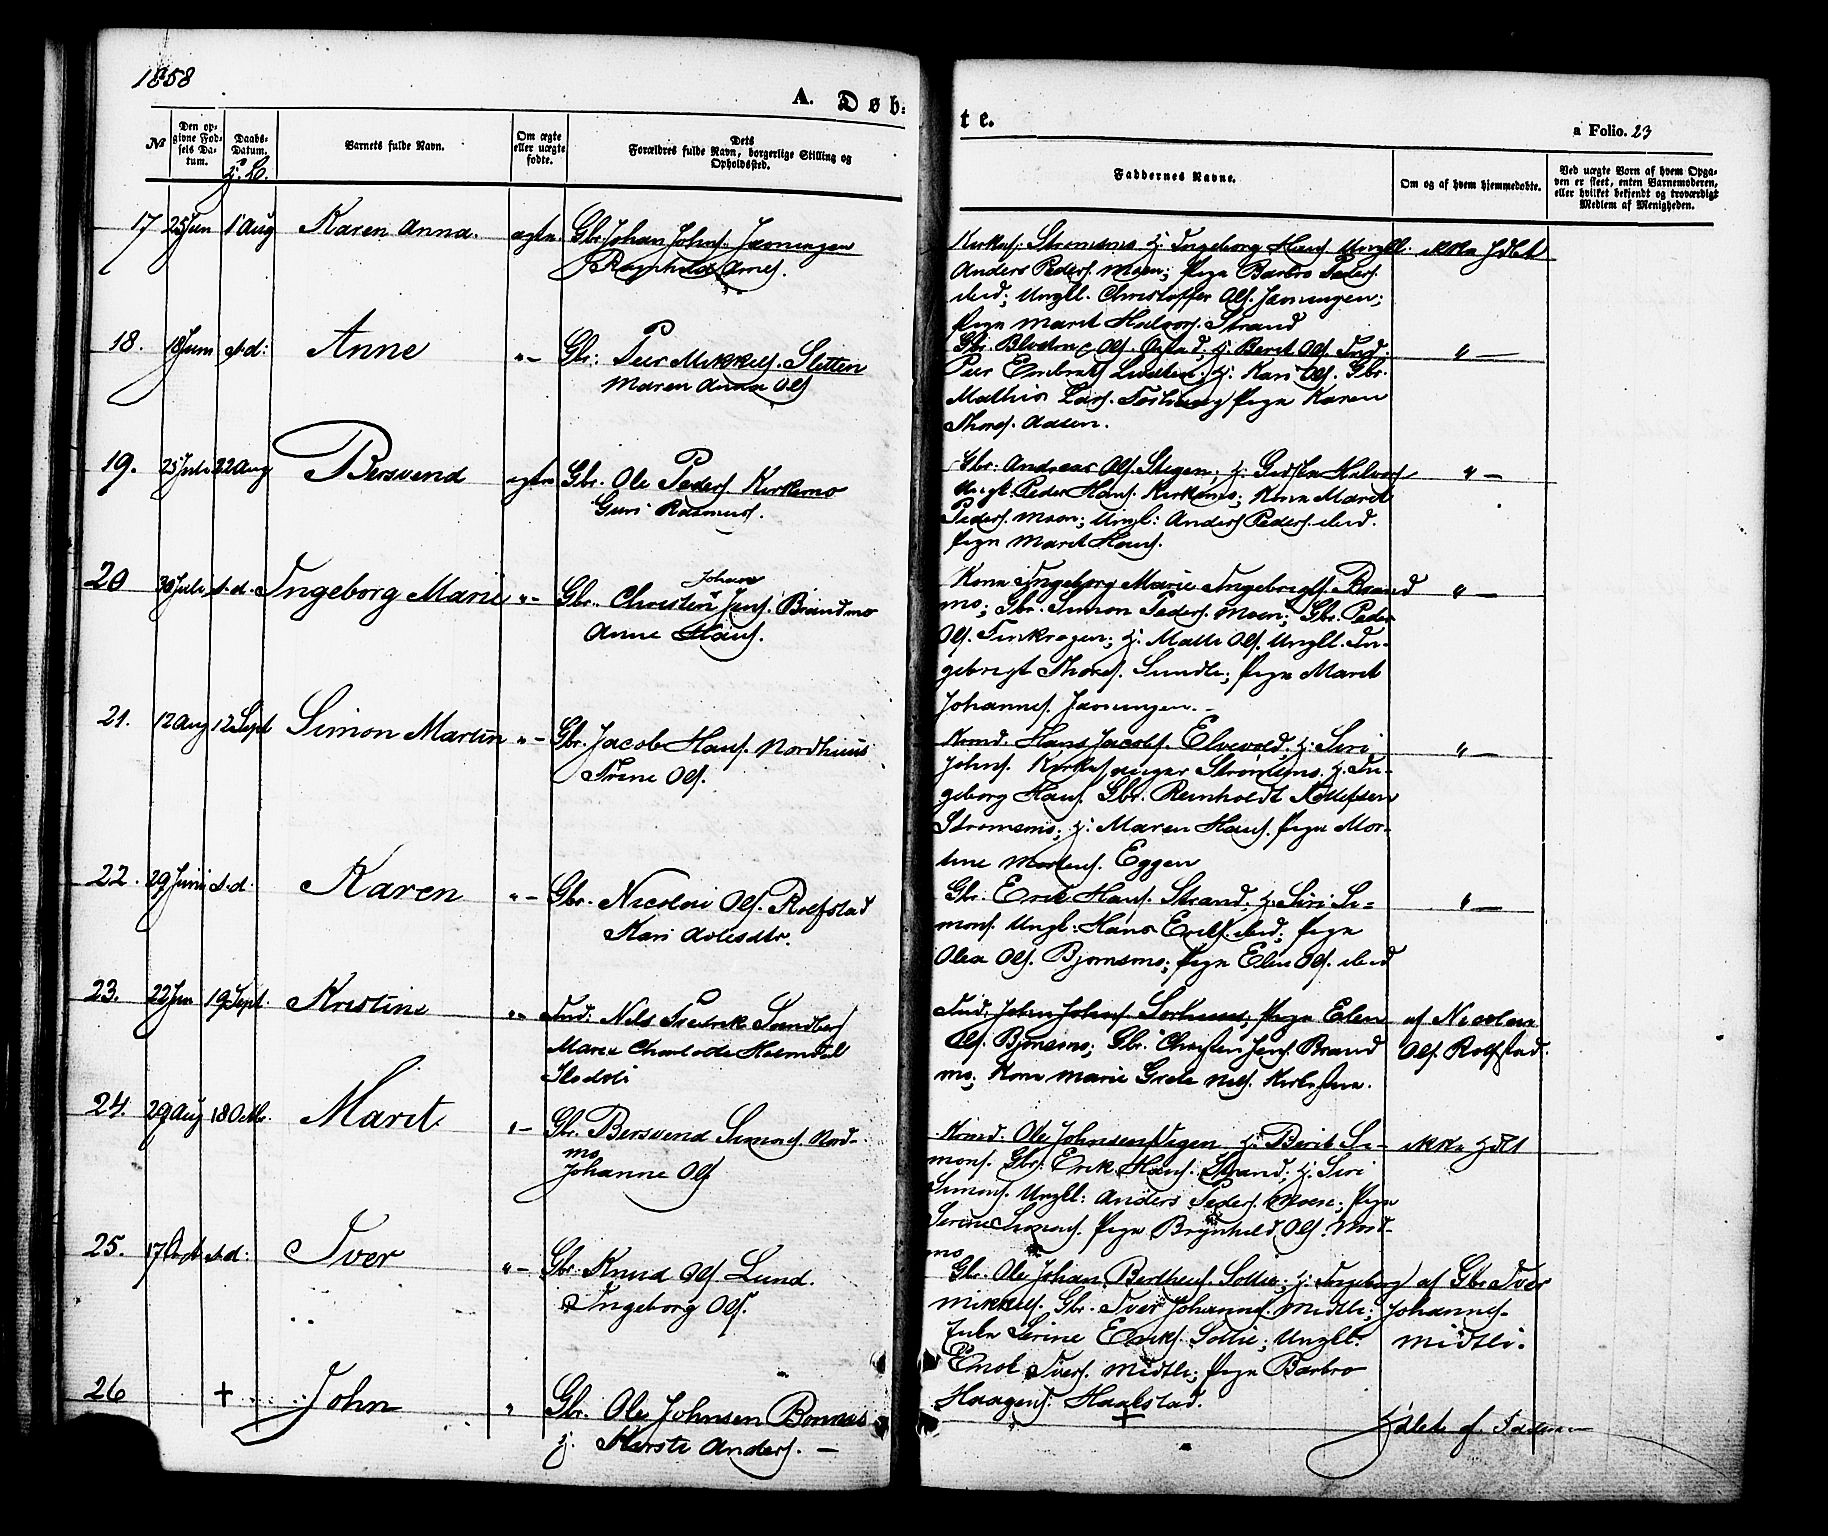 1858
A. Døb-
te.
a Folio. 23
No
Den op-
givne Fød-
sels Da-
tum.
Daabs-
Datum.
Barnets fulde Navn.
Om ægte
eller uægte
fødte.
Dets
Forældres fulde Navn, borgerlige Stilling og
Opholdssted.
Faddernes Navne.
Om og af hvem hjemmedøbte.
Ved uægte Børn af hvem Opga-
ven er skeet, enten Barnemoderen,
eller hvilket bekjendt og troværdigt
Medlem af Menigheden.
17 25 Jun 1 Aug Karen Anna. ægte Gbr. Johan Johns. Jamningen
Ragnhild Arnes.
Kirkes. Strømsmo h. Ingeborg Hans. Ungkl. ikke hdbt
Anders Peders. Moen; Pige Barbro Peders.
ibid; Ungkl. Christoffer Ols. Jamningen;
Pige Marit Halvors. Strand
18. 18 Juni s.d: Anne "- Gbr: Peer Mikkels. Sletten
Maren Anna Ols
Ols. h. Berit Ols. Ind:
Peer Embrets h. Kari Ols. Gbr.
Mathis Lars. Pige Karen
Thores. Aasen.
" —
19. 25 Juli 22 Aug Bersvend ægte Gbr. Ole Peders. Kirkemo
Guri Rasmus.
Gbr: Andreas Ols. Stegen; h. Halvors
Ungk. Peder Hans. Kirkemo; Kone Marit
Peders. Moen; Ungk: Anders Peders. ibid.
Pige Marit Hans.
" —
20 30 Juli s.d. Ingeborg Marie "- Gbr. Christen Johan Jens. Brandmo
Anne Hans.
Kone Ingeborg Marie Ingebrigts. Brand
mo; Gbr. Simon Peders. Moen; Gbr. Peder
Ols. Finkrogen; h. Malle Ols. Ungkl. In-
gebrigt Thores. Sundli; Pige Marit
Johannes. Jamningen. -
" —
21. 12 Aug 12 Sept Simon Martin "- Gbr. Jacob Hans. Nordhuus
Trine Ols.
Hans Jacobs. Elvevold; h: Siri
Johns. Kirkesanger Strømsmo. h. In-
geborg Hans. Gbr. Reinholdt
Strømsmo; h. Maren Hans. Pige Mor-
tine Mortens. Eggen
" —
22. 29 Juni s.d. Karen "- Gbr. Nicolai Ols. Rolfstad
Kari
Gbr. Erik Hans. Strand; h. Siri Si-
mons. Ungk: Hans Eriks. ibid; Pige
Olea Ols. Bjørnsmo; Pige Elen Ols. ibid
" —
23. 22 Jun 19 Sept. Kristine "- Ind: Nils Fredrik Sundberg
Maria Charlotte Holmdal
Ind: John Johns. Sørhuus; Pige Elen
Ols. Bjørnsmo; Gbr. Christen Jens. Brand
mo; Kone Marie Grete Nils.
af Nicolai
Ols. Rolfstad.
24. 29 Aug 18 Octbr. Marit "- Gbr. Bersvend Simons. Nord-
mo
Johanne Ols
Ole Johnsen h: Berit Si-
mons. Gbr. Erik Hans. Strand; h. Siri
Simons. Ungkl: Anders Peders. Moen; Pige
Serine Simons. Pige Brynhild Ols. Nord-
mo
ikke hdbt
25. 17 Sept s.d: Iver "- Gbr. Knud Ols. Lund.
Ingeborg Ols.
Gbr. Ole Johan Berthens. Sollie; h. Ingeborg
Mikkels. Gbr. Iver Johannes. Midtli;
Serine Eriks. Sollie; Ungkl:
Enok Ivers. Midtli; Pige Barbro
Haagens. Haalstad.
af Gbr. Iver
Johannes.
Midtli.
26 † John " Gbr. Ole Johnsen Bonnes
h. Kirsti Anders. —
†